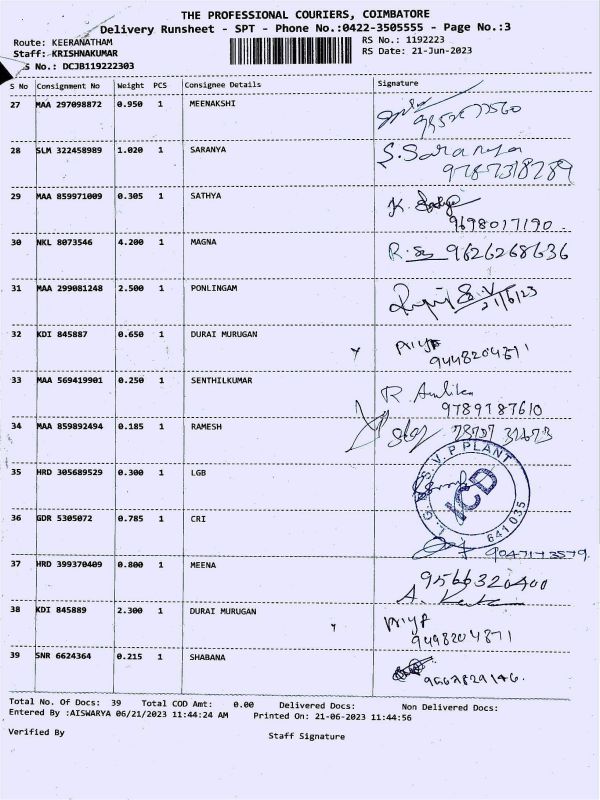 THE PROFESSIONAL COURIERS, COIMBATORE
Delivery Runsheet - SPT - Phone No.:0422-3505555 - Page No.:3
Route: KEERANATHAM RS No.: 1192223
Staff: KRISHNAKUMAR RS Date: 21-Jun-2023
S No.: DCJB119222303
S No Consignment No Weight PCS Consignee Details Signature
27 MAA 297098872 0.950 1 MEENAKSHI
28 SLM 322458989 1.020 1 SARANYA S. Saranya
9787318289
29 MAA 859971009 0.305 1 SATHYA K.
9698017190.
30 NKL 8073546 4.200 1 MAGNA R. 9626268636
31 MAA 299081248 2.500 1 PONLINGAM
21/6/23
32 KDI 845887 0.650 1 DURAI MURUGAN Priya
33 MAA 569419901 0.250 1 SENTHILKUMAR R
9789787610
34 MAA 859892494 0.185 1 RAMESH
35 HRD 305689529 0.300 1 LGB
S.V.P PLANT
641 035
36 GDR 5305072 0.785 1 CRI
9047173579.
37 HRD 399370409 0.800 1 MEENA 9566320400
A.
38 KDI 845889 2.300 1 DURAI MURUGAN Priya
9498204871
39 SNR 6624364 0.215 1 SHABANA
Total No. Of Docs: 39 Total COD Amt: 0.00 Delivered Docs: Non Delivered Docs:
Entered By :AISWARYA 06/21/2023 11:44:24 AM Printed On: 21-06-2023 11:44:56
Verified By Staff Signature